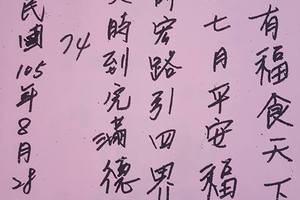 有福食天下
七月平安福
路引四界
時到 滿德
74
民國105年8月28